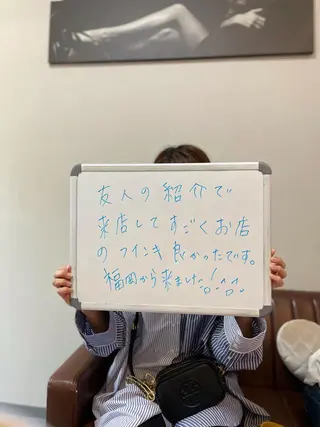 友人の紹介で
来店してすごくお店
のフインキ良かったです。
福岡から来ました!^^